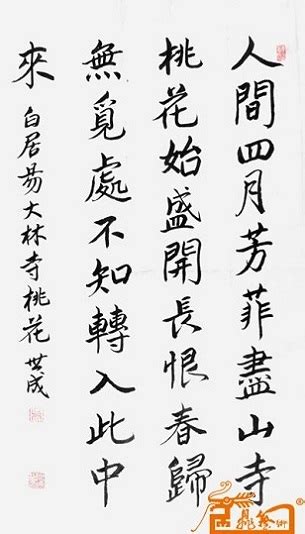 人間四月芳菲盡山寺
桃花始盛開長恨春歸
無覓處不知轉入此中
來
白居易大林寺桃花 世成